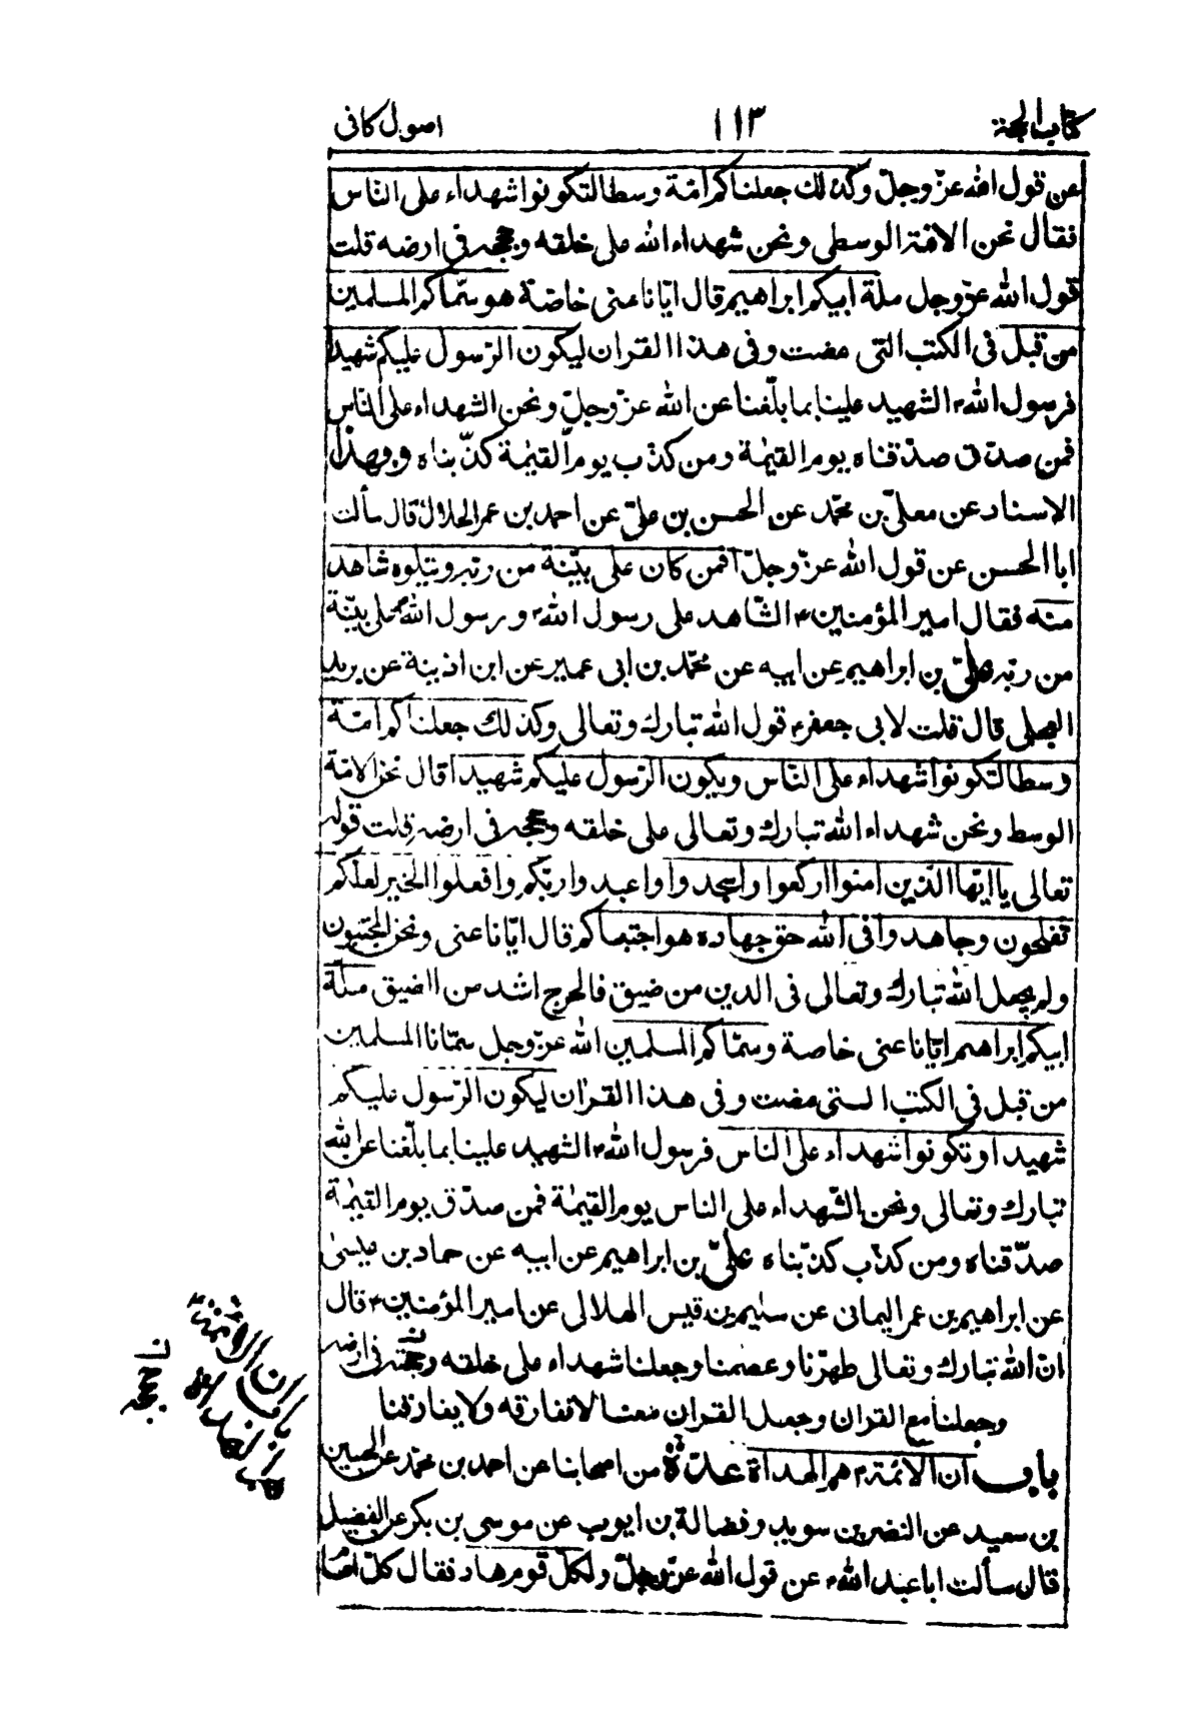 كتاب الحجة ١١٣ اصول كافى
عن قول الله عزّ وجلّ وكذلك جعلناكم امّة وسطا لتكونوا شهداء على النّاس
فقال نحن الامّة الوسطى ونحن شهداء الله على خلقه وحججه فى ارضه قلت
قول الله عزّ وجل ملة ابيكم ابراهيم قال ايّانا عنى خاصّة هو سمّاكم المسلمين
من قبل فى الكتب التى مضت وفى هذا القران ليكون الرّسول عليكم شهيدا
فرسول الله ص الشهيد علينا بما بلّغنا عن الله عزّ وجلّ ونحن الشهداء على النّاس
فمن صدّق صدّقناه يوم القيٰمة ومن كذّب يوم القيٰمة كذّبناه وبهذا
الاسناد عن معلىّ بن محمّد عن الحسن بن علىّ عن احمد بن عمر الحلال قال سألت
ابا الحسن عن قول الله عزّ وجلّ افمن كان على بيّنة من ربّه ويتلوه شاهد
منه فقال امير المؤمنين ع الشّاهد على رسول الله ص ورسول الله على بيّنة
من ربّه علىّ بن ابراهيم عن ابيه عن محمّد بن ابى عمير عن ابن اذينة عن بريد
العجلى قال قلت لابى جعفر ع قول الله تبارك وتعالى وكذلك جعلناكم امّة
وسطا لتكونوا شهداء على النّاس ويكون الرّسول عليكم شهيدا قال نحن الامّة
الوسط ونحن شهداء الله تبارك وتعالى على خلقه وحججه فى ارضه قلت قوله
تعالى يا ايّها الّذين امنوا اركعوا واسجدوا واعبدوا ربّكم وافعلوا الخير لعلكم
تفلحون وجاهدوا فى الله حق جهاده هو اجتباكم قال ايّانا عنى ونحن المجتبون
ولم يجعل الله تبارك وتعالى فى الدين من ضيق فالحرج اشد من الضيق ملّة
ابيكم ابراهيم ايّانا عنى خاصة وسمّاكم المسلمين الله عزّ وجل سمّانا المسلمين
من قبل فى الكتب الستى مضت وفى هذا القران ليكون الرّسول عليكم
شهيدا وتكونوا شهداء على الناس فرسول الله ص الشهيد علينا بما بلّغنا عن الله
تبارك وتعالى ونحن الشّهداء على الناس يوم القيٰمة فمن صدّق يوم القيٰمة
صدّقناه ومن كذّب كذّبناه علىّ بن ابراهيم عن ابيه عن حماد بن عيسىٰ
عن ابراهيم بن عمر اليمانى عن سليم بن قيس الهلالى عن امير المؤمنين ع قال
انّ الله تبارك وتعالى طهّرنا وعصمنا وجعلنا شهداء على خلقه وحجّته فى ارضه
وجعلنا مع القران وجعل القران معنا لا نفارقه ولا يفارقنا
باب ان الائمّة ع هم الهداة عدّة من اصحابنا عن احمد بن محمّد عن الحسين
بن سعيد عن النضر بن سويد وفضالة بن ايوب عن موسى بن بكر عن الفضيل
قال سألت ابا عبد الله ع عن قول الله عزّ وجلّ ولكلّ قوم هاد فقال كلّ امام
باب ان الائمّة ع
هم الهداة